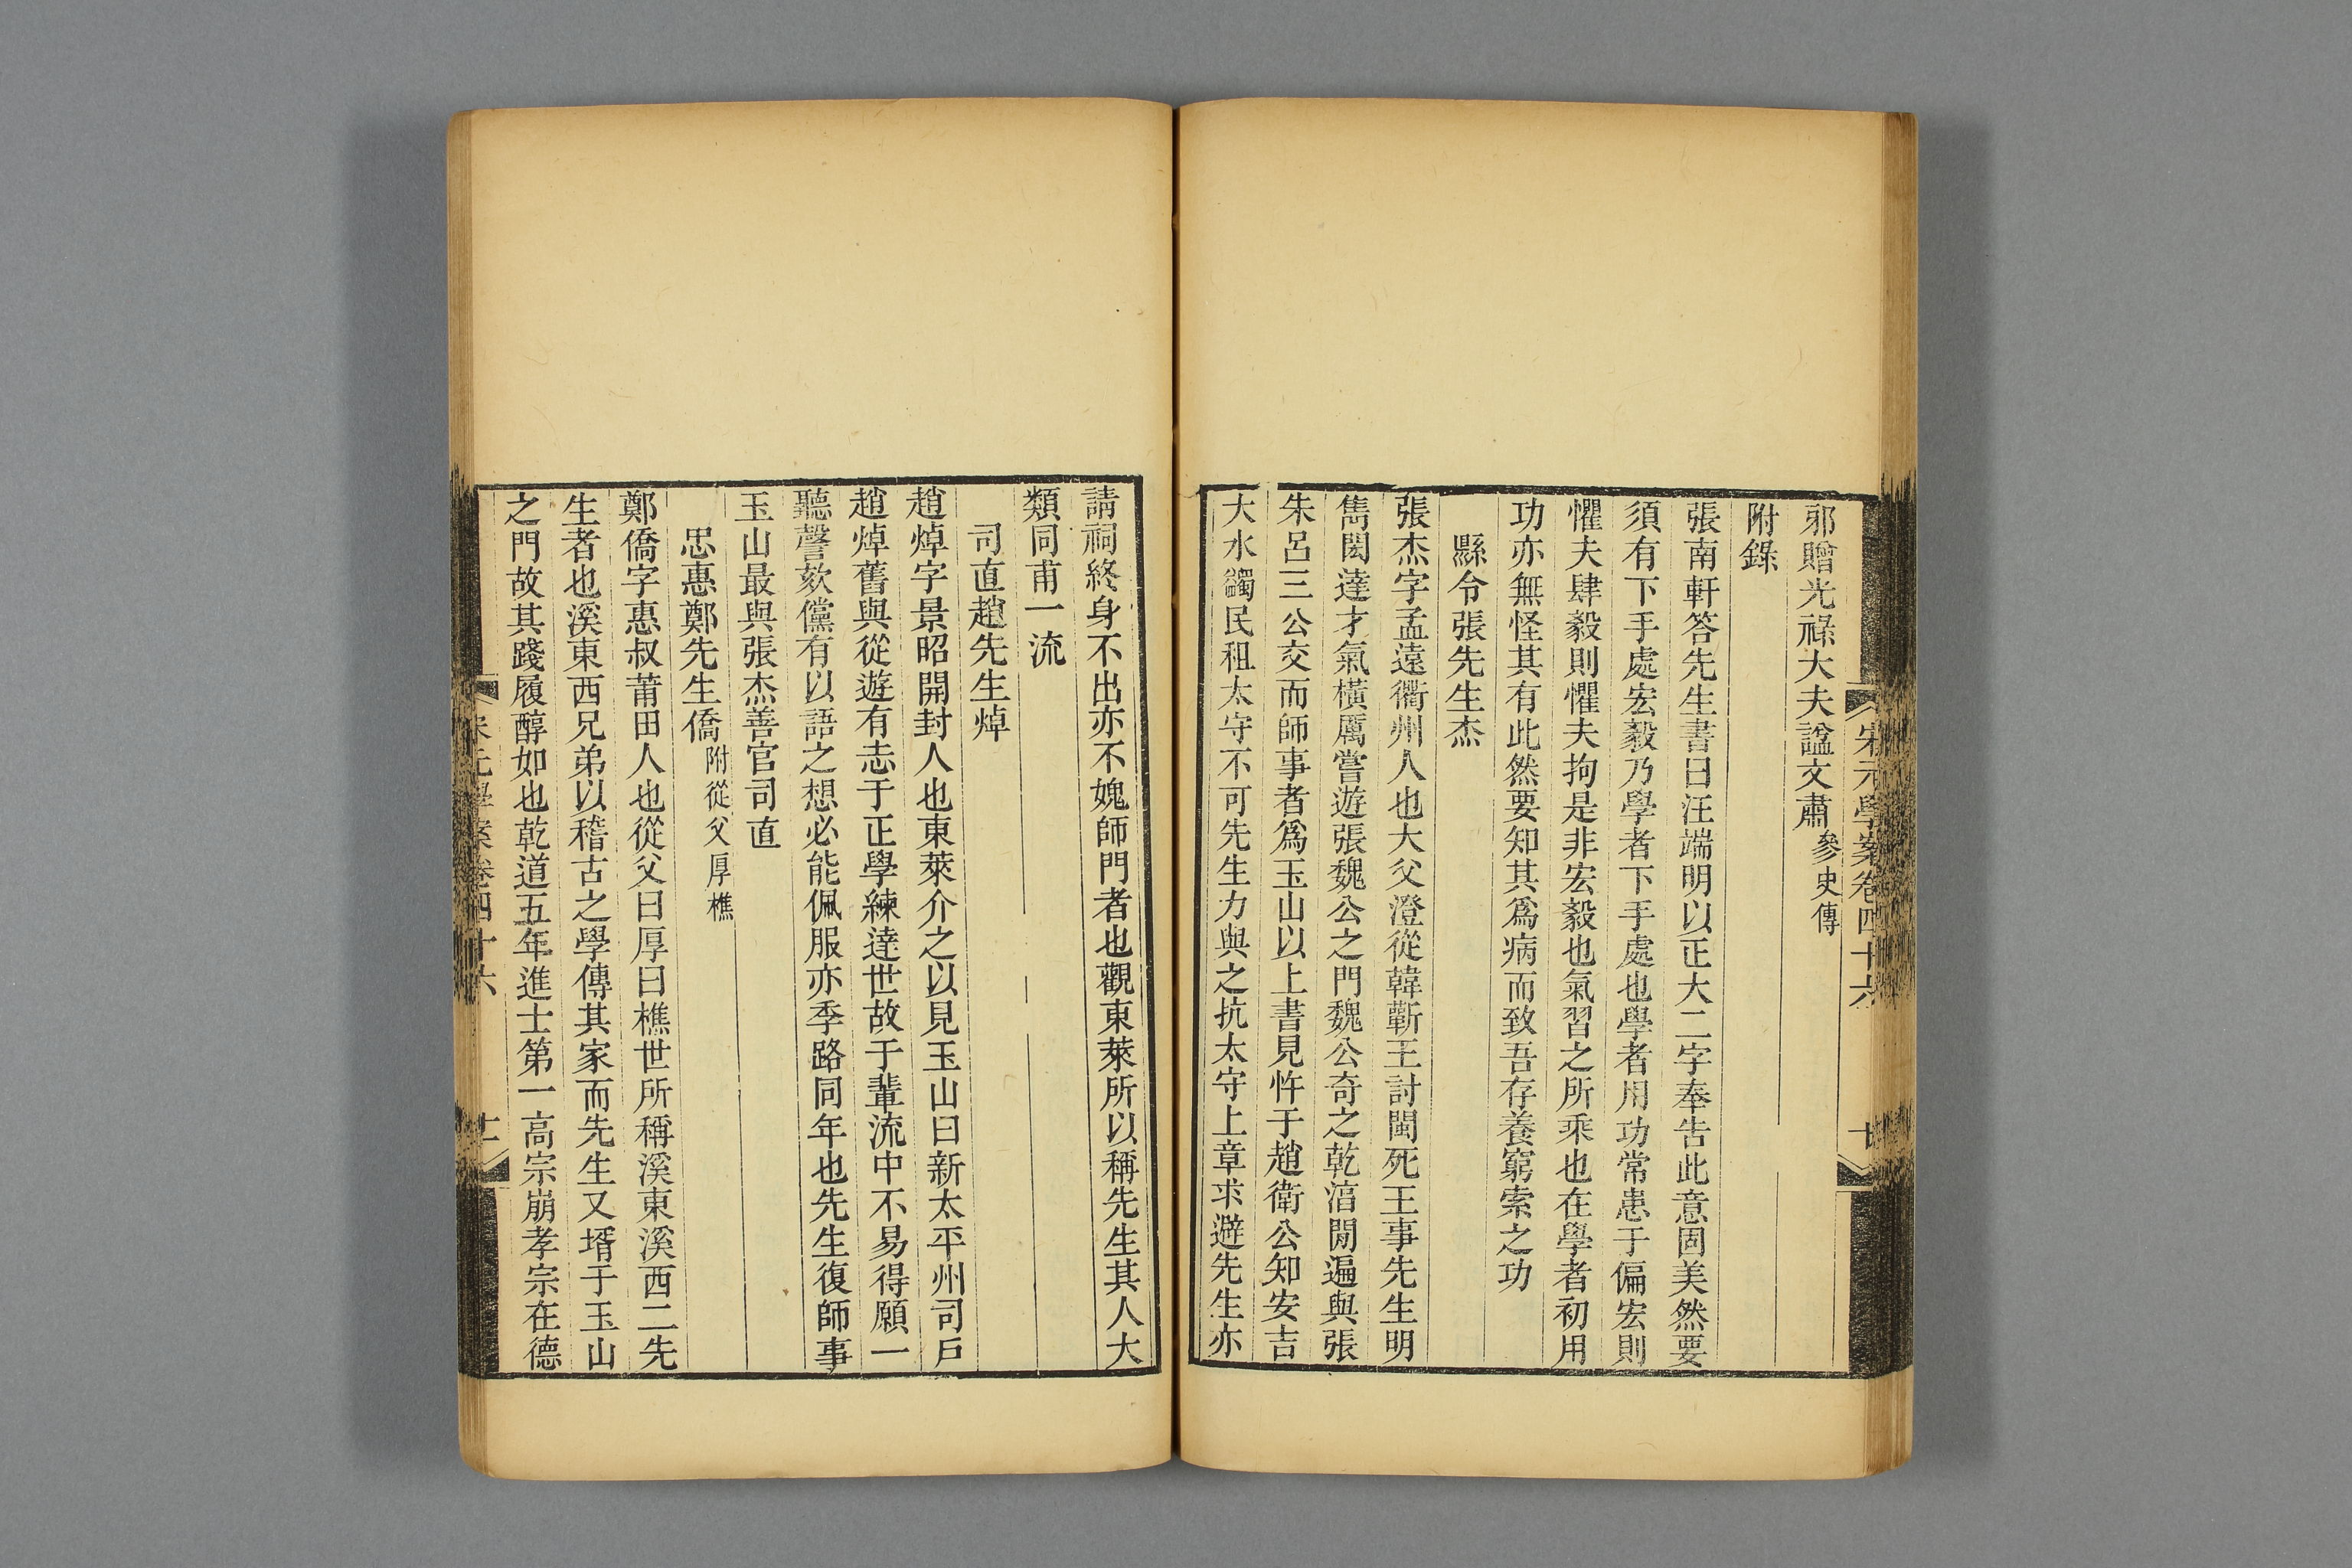 宋元學案卷四十六
十
邪贈光祿大夫諡文肅參史傳
附錄
張南軒答先生書曰汪端明以正大二字奉告此意固美然要
須有下手處宏毅乃學者下手處也學者用功常患于偏宏則
懼夫肆毅則懼夫拘是非宏毅也氣習之所乘也在學者初用
功亦無怪其有此然要知其爲病而致吾存養窮索之功
縣令張先生杰
張杰字孟遠衢州人也大父澄從韓蘄王討閩死王事先生明
雋閎達才氣橫厲嘗遊張魏公之門魏公奇之乾淳閒遍與張
朱呂三公交而師事者爲玉山以上書見忤于趙衛公知安吉
大水蠲民租太守不可先生力與之抗太守上章求避先生亦
請祠終身不出亦不媿師門者也觀東萊所以稱先生其人大
類同甫一流
司直趙先生焯
趙焯字景昭開封人也東萊介之以見玉山曰新太平州司戶
趙焯舊與從遊有志于正學練達世故于輩流中不易得願一
聽謦欬儻有以語之想必能佩服亦季路同年也先生復師事
玉山最與張杰善官司直
忠惠鄭先生僑附從父厚樵
鄭僑字惠叔莆田人也從父曰厚曰樵世所稱溪東溪西二先
生者也溪東西兄弟以稽古之學傳其家而先生又壻于玉山
之門故其踐履醇如也乾道五年進士第一高宗崩孝宗在德
宋元學案卷四十六